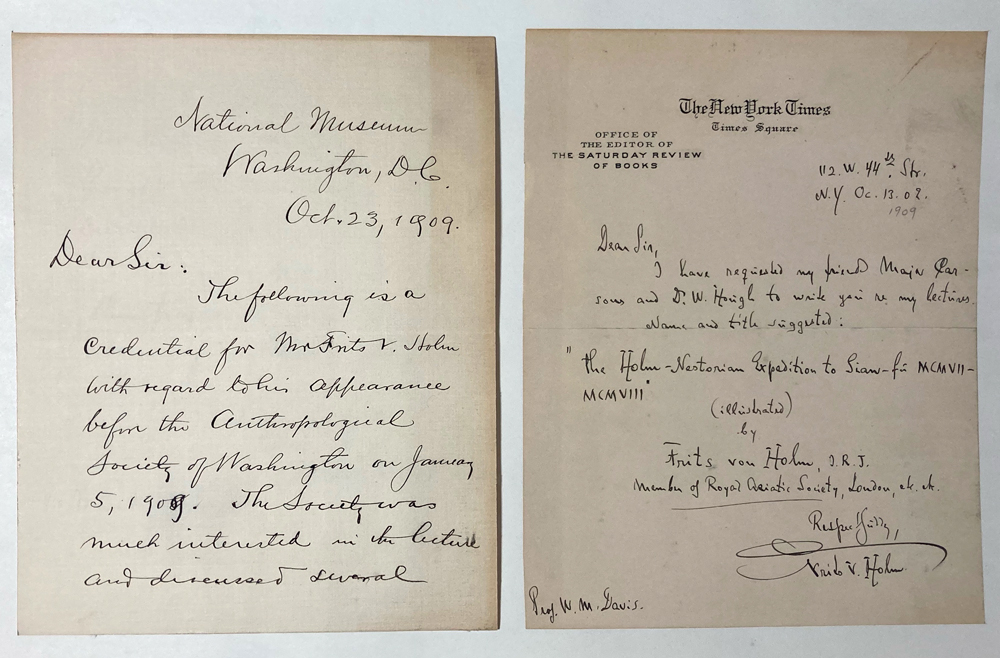 National Museum
Washington, D.C.
Oct. 23, 1909.
Dear Sir:
The following is a
credential for Mr Frits V. Holm
with regard to his appearance
before the Anthropological
Society of Washington on January
5, 1909. The Society was
much interested in the lecture
and discussed several
The New York Times
Times Square
OFFICE OF
THE EDITOR OF
THE SATURDAY REVIEW
OF BOOKS
112. W. 44th Str.
N.Y. Oc. 13. 09.
1909
Dear Sir,
I have requested my friend Major Par-
sons and Dr. W. Hough to write you re my lectures.
Name and title suggested:
"The Holm-Nestorian Expedition to Sian-fu MCMVII-
MCMVIII"
(illustrated)
by
Frits von Holm,
Member of Royal Asiatic Society, London, etc. etc.
Respectfully,
Frits V. Holm
Prof. W. M. Davis.